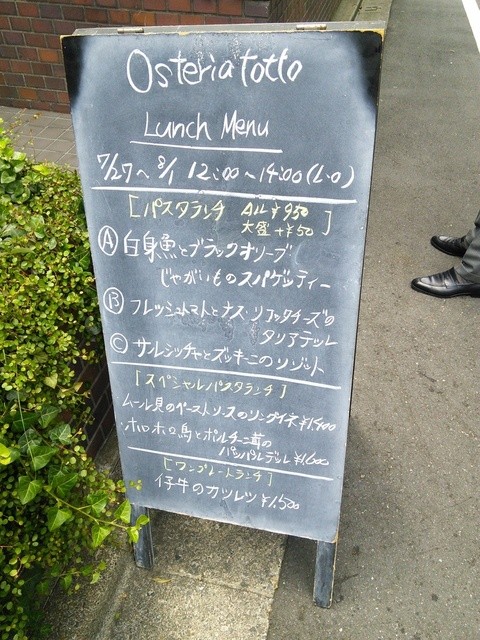 Osteria totto
Lunch Menu
7/27～8/1 12:00～14:00(L.O)
[パスタランチ ALL ¥950
大盛 +¥50]
Ⓐ白身魚とブラックオリーブ
じゃがいものスパゲッティー
Ⓑフレッシュトマトとナス・リコッタチーズの
タリアテッレ
Ⓒサルシッチャとズッキーニのリゾット
[スペシャルパスタランチ]
ムール貝のペーストソースのリングイネ¥1,400
・ホロホロ鳥とポルチーニ茸の
パッパルデッレ¥1,600
[ワンプレートランチ]
仔牛のカツレツ¥1,500